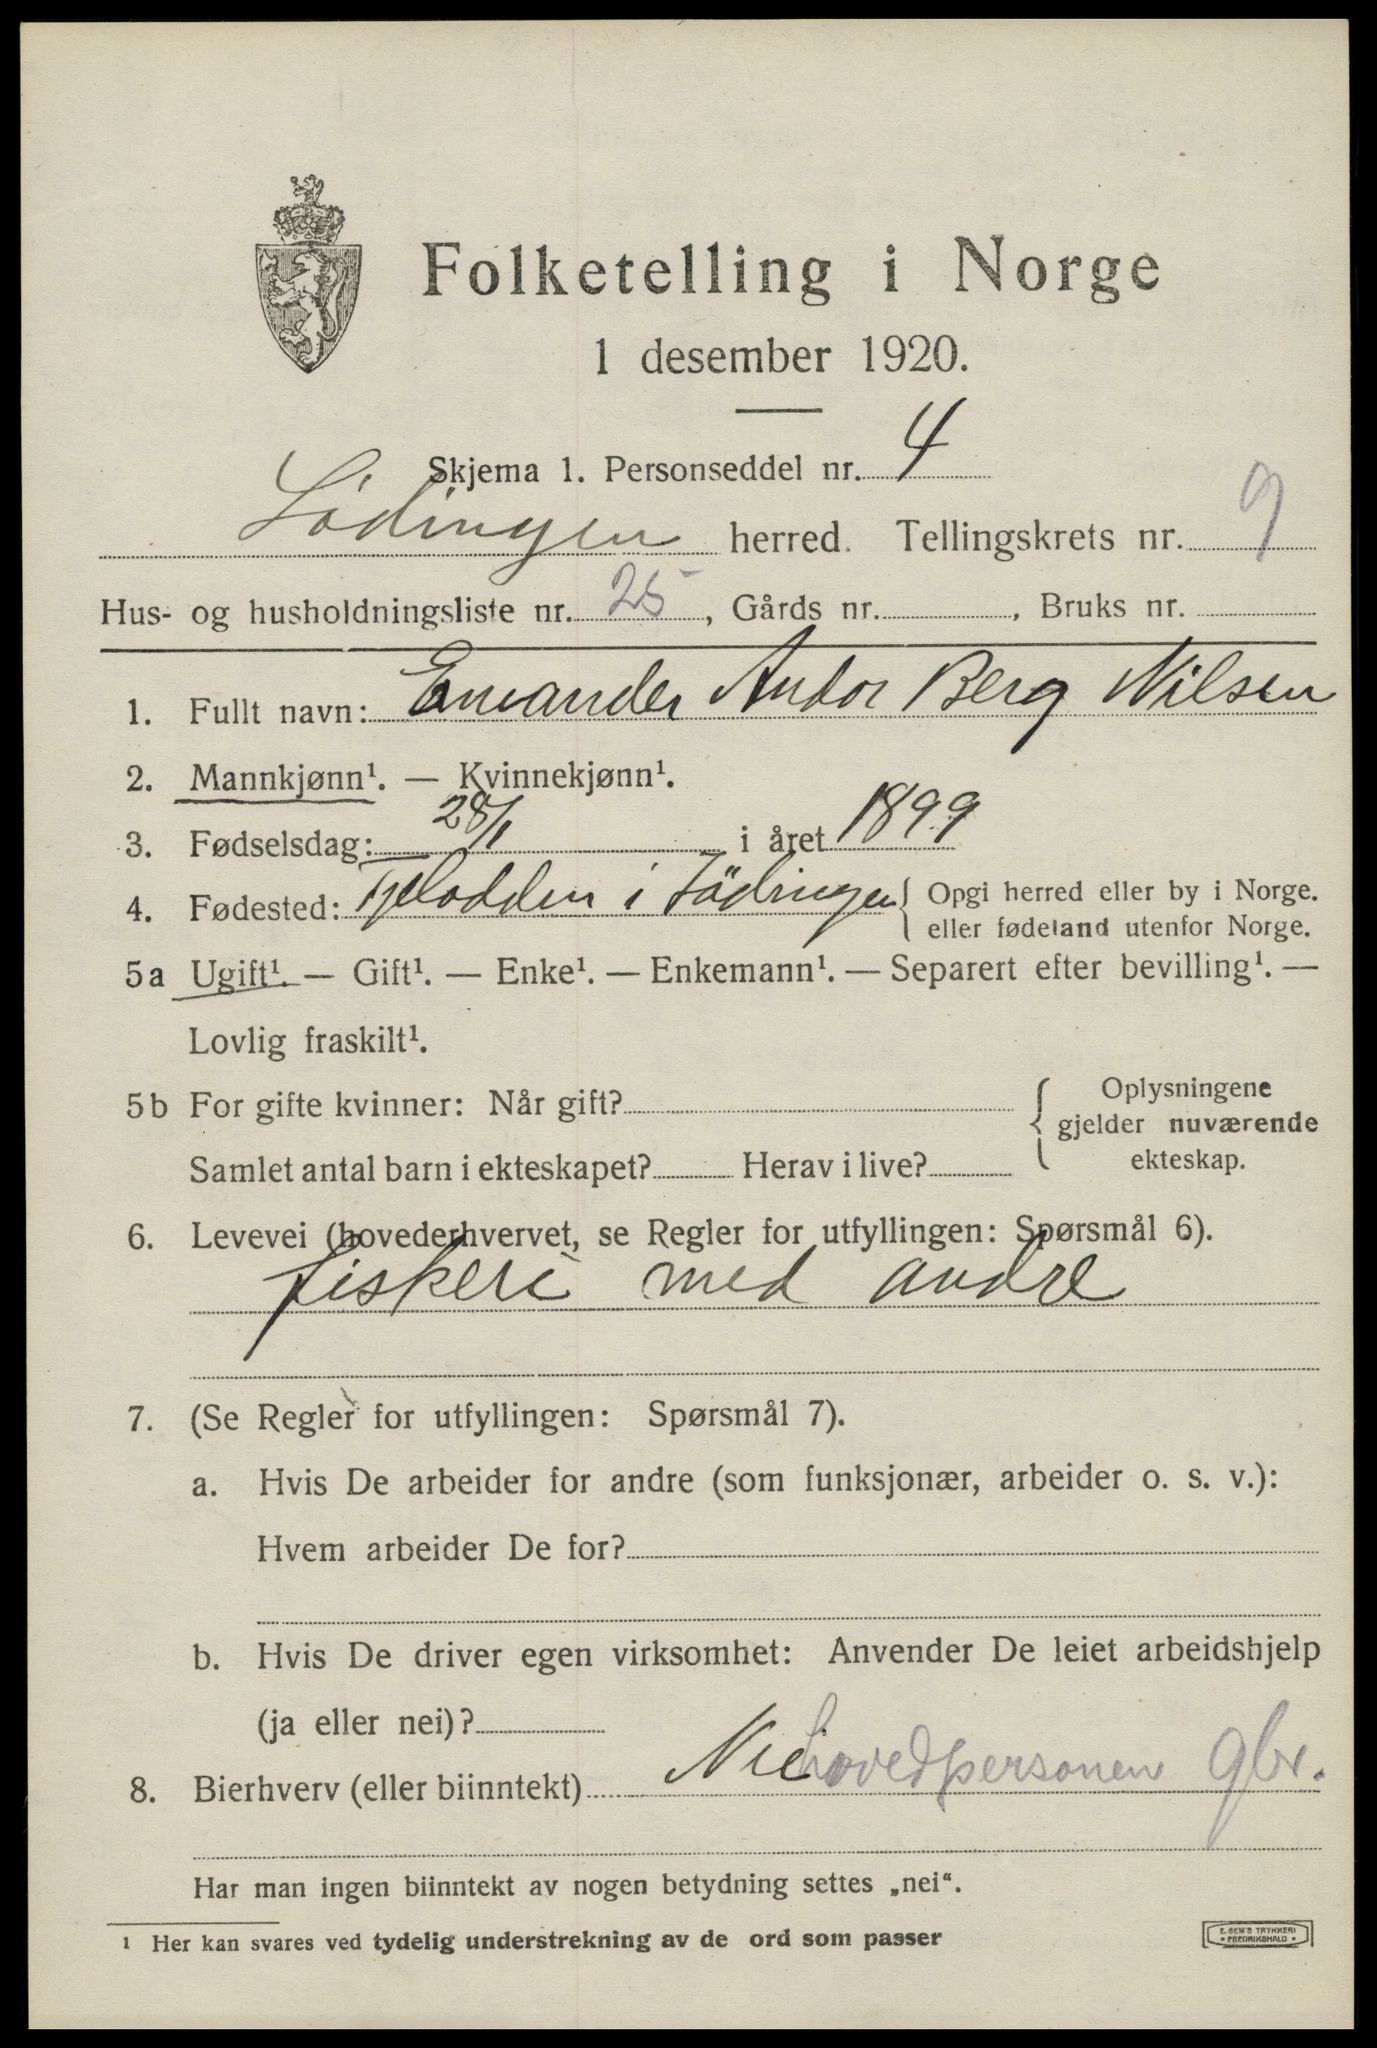 Folketelling i Norge
1 desember 1920.
Skjema 1. Personseddel nr. 4
Lödingen herred. Tellingskrets nr. 9
Hus- og husholdningsliste nr. 25, Gårds nr. , Bruks nr.
1. Fullt navn: Emander Andor Berg Nilsen
2. Mannkjønn¹. — Kvinnekjønn¹.
3. Fødselsdag: 28/1 i året 1899
4. Fødested: Tjelodden i Lödingen { Opgi herred eller by i Norge.
eller fødeland utenfor Norge.
5a Ugift¹. — Gift¹. — Enke¹. — Enkemann¹. — Separert efter bevilling¹. —
Lovlig fraskilt¹.
5b For gifte kvinner: Når gift? { Oplysningene
gjelder nuværende
Samlet antal barn i ekteskapet? Herav i live? ekteskap.
6. Levevei (hovederhvervet, se Regler for utfyllingen: Spørsmål 6).
fiskeri med andre
7. (Se Regler for utfyllingen: Spørsmål 7).
a. Hvis De arbeider for andre (som funksjonær, arbeider o. s. v.):
Hvem arbeider De for?
b. Hvis De driver egen virksomhet: Anvender De leiet arbeidshjelp
(ja eller nei)?
8. Bierhverv (eller biinntekt) Nei hovedpersonen gbr.
Har man ingen biinntekt av nogen betydning settes „nei“.
¹ Her kan svares ved tydelig understrekning av de ord som passer
E. SEM'S TRYKKERI
FREDRIKSHALD